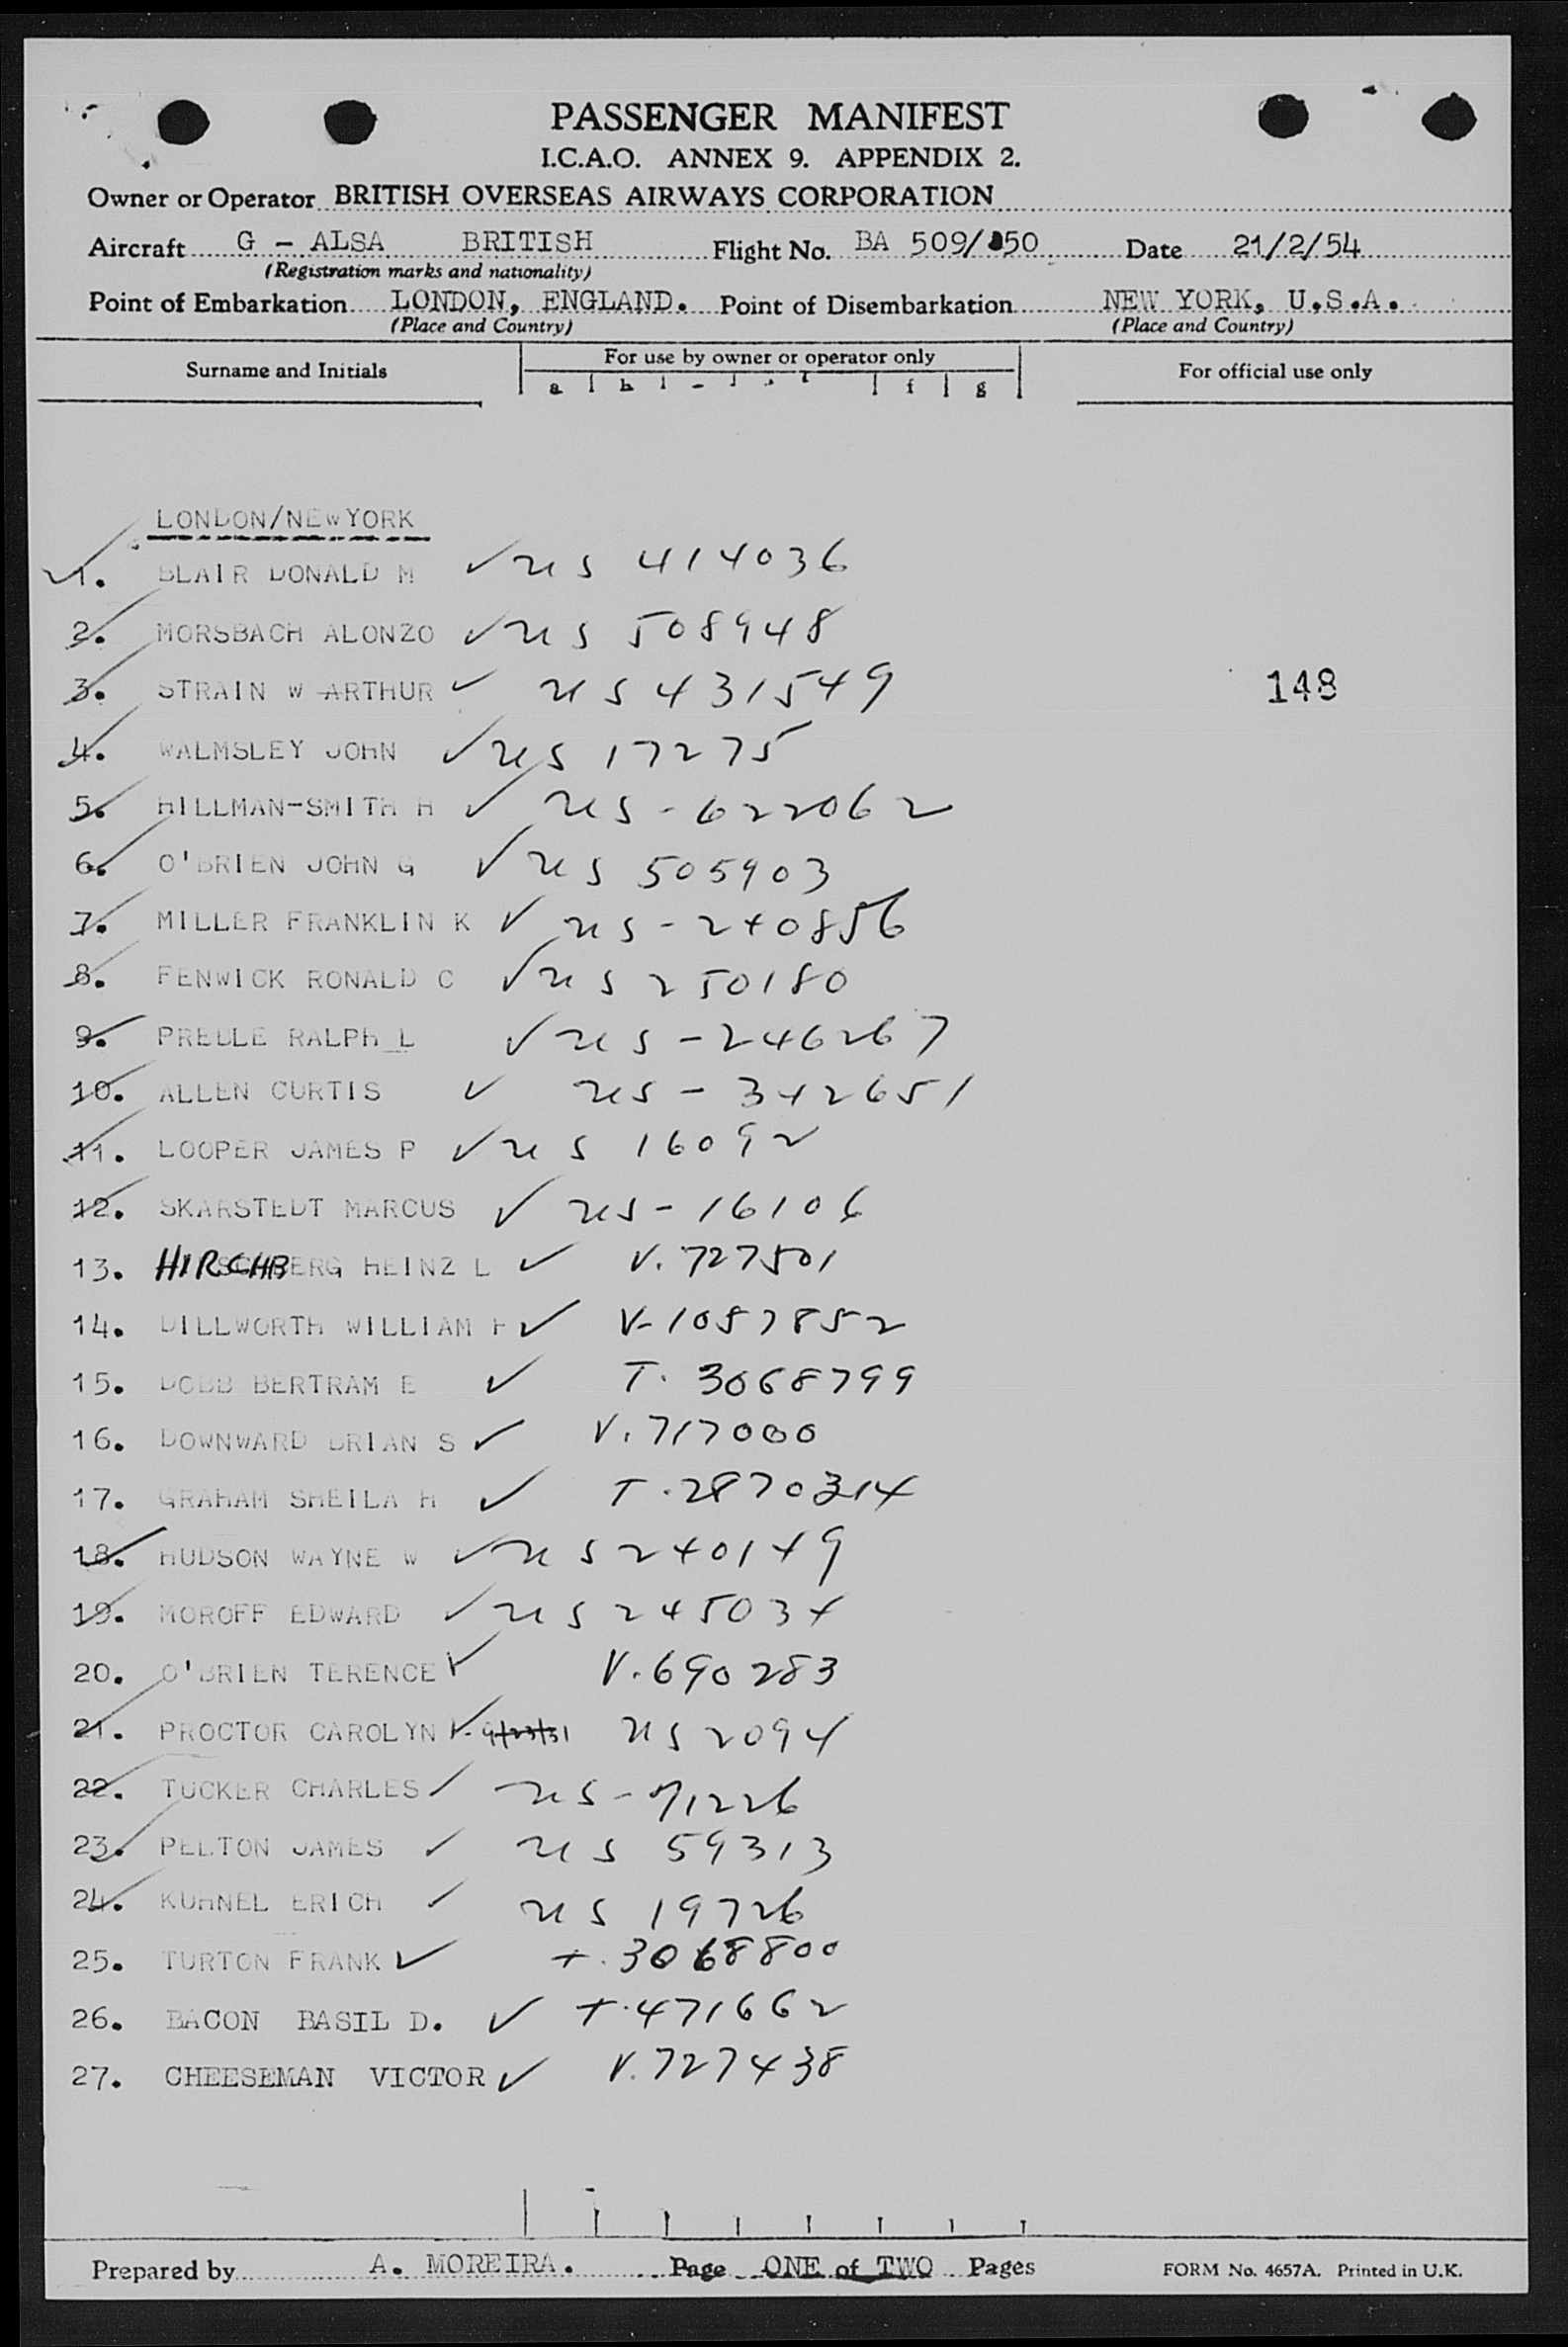 PASSENGER MANIFEST
I.C.A.O. ANNEX 9. APPENDIX 2.
Owner or Operator BRITISH OVERSEAS AIRWAYS CORPORATION
Aircraft G - ALSA BRITISH Flight No. BA 509/050 Date 21/2/54
(Registration marks and nationality)
Point of Embarkation LONDON, ENGLAND. Point of Disembarkation NEW YORK, U.S.A.
(Place and Country) (Place and Country)
Surname and Initials For use by owner or operator only For official use only
a b f g
LONDON/NEWYORK
1. BLAIR DONALD M ✓ US 414036
2. MORSBACH ALONZO ✓ US 508948
3. STRAIN W ARTHUR ✓ US 431549 148
4. WALMSLEY JOHN ✓ US 17275
5. HILLMAN-SMITH H ✓ US - 622062
6. O'BRIEN JOHN G ✓ US 505903
7. MILLER FRANKLIN K ✓ US - 240856
8. FENWICK RONALD C ✓ US 250180
9. PRELLE RALPH L ✓ US - 246267
10. ALLEN CURTIS ✓ US - 342651
11. LOOPER JAMES P ✓ US 16092
12. SKARSTEDT MARCUS ✓ US - 16106
13. HIRCHBERG HEINZ L ✓ V. 727501
14. DILLWORTH WILLIAM ✓ V-1057852
15. DOBB BERTRAM E ✓ T. 3068799
16. DOWNWARD BRIAN S ✓ V. 717000
17. GRAHAM SHEILA H ✓ T. 2870314
18. HUDSON WAYNE W ✓ US 240149
19. MOROFF EDWARD ✓ US 245034
20. O'BRIEN TERENCE ✓ V. 690283
21. PROCTOR CAROLYN ✓ 9/23/31 US 2094
22. TUCKER CHARLES ✓ US - 71226
23. PELTON JAMES ✓ US 59313
24. KUHNEL ERICH ✓ US 19726
25. TURTON FRANK ✓ T. 3068800
26. BACON BASIL D. ✓ T. 471662
27. CHEESEMAN VICTOR ✓ V. 727438
Prepared by A. MOREIRA. Page ONE of TWO Pages FORM No. 4657A. Printed in U.K.